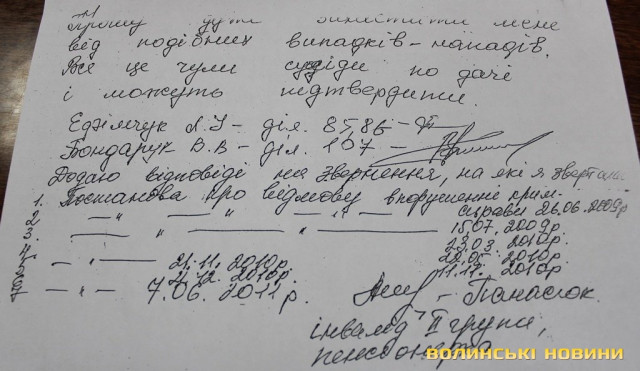 Прошу захистити мене
від подібних випадків - нападів.
Все це чули сусіди по дачі
і можуть підтвердити.
Л.І - діл. 85,86 -
Бондарук В.В - діл. 107 -
Додаю відповіді на звернення, на які я
1. Постанова про відмову в порушенні крим-
справи 26.06.2009р
2 — " — — " — — " — 15.07.2009р.
3. — " — " — 23.03.2010р.
22.05.2010р.
11.11.2010р.
— " — 21.11.2010р.
12.2010р.
7 — " — 7.06.2011р.
- Панасюк.
інвалід ІІ групи,
пенсіонерка
ВОЛИНСЬКІ НОВИНИ